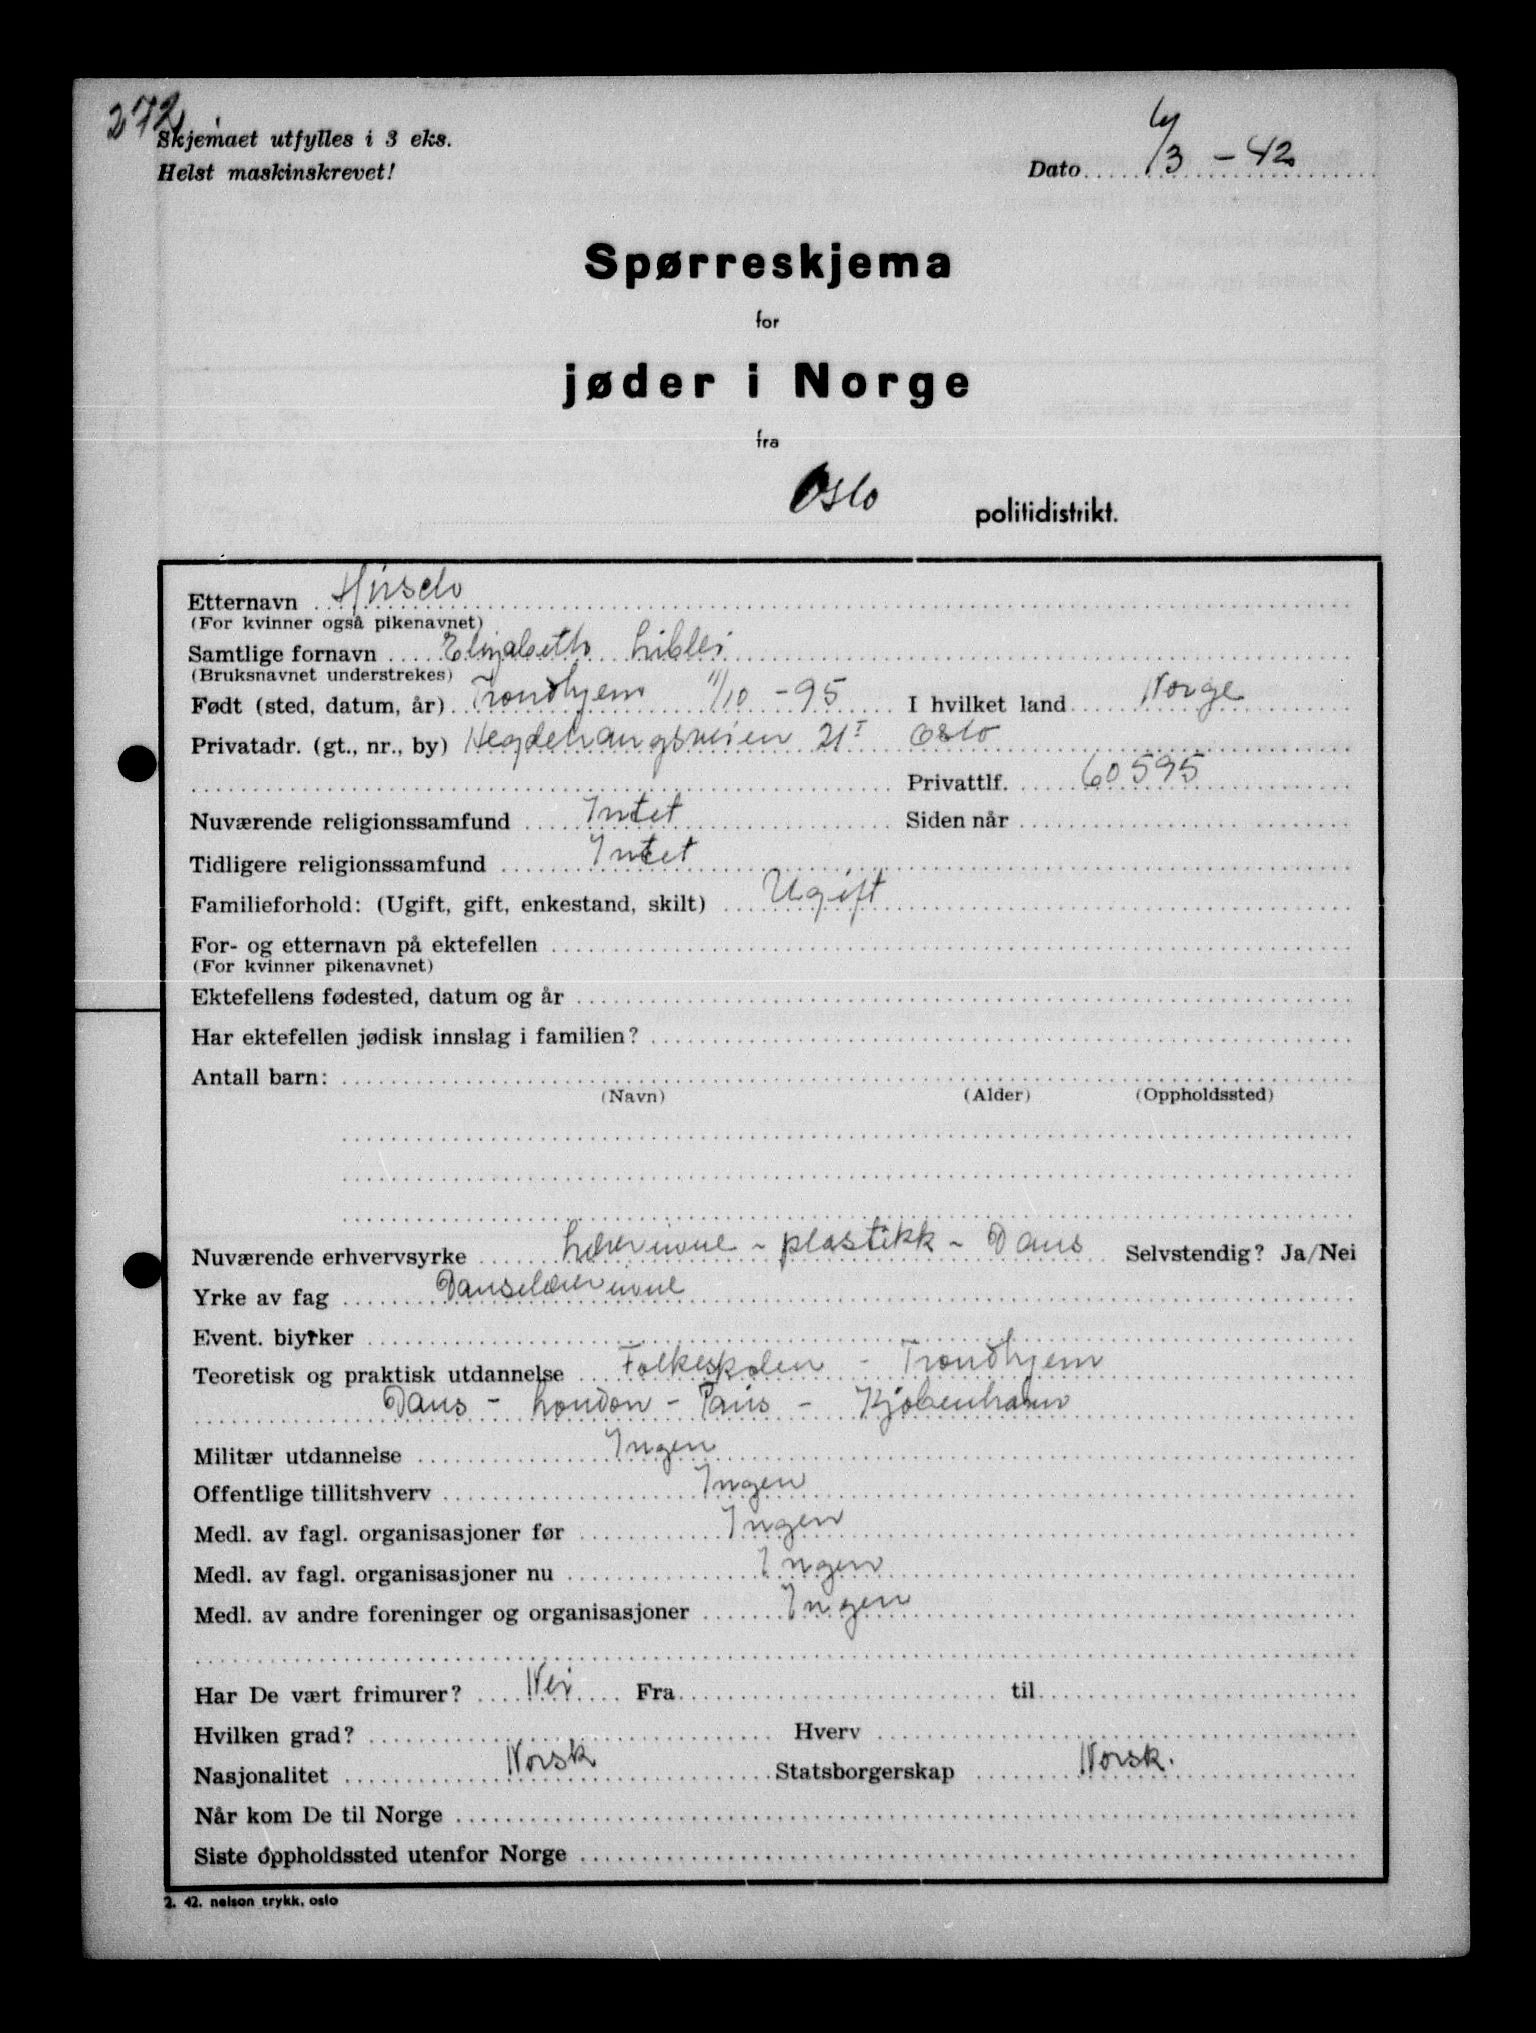 272
Skjemaet utfylles i 3 eks.
Helst maskinskrevet!
Dato 6/3 - 42
Spørreskjema
for
jøder i Norge
fra
Oslo politidistrikt.
Etternavn Hirsch
(For kvinner også pikenavnet)
Samtlige fornavn Elisabeth
(Bruksnavnet understrekes)
Født (sted, datum, år) Trondhjem 11/10 - 95 I hvilket land Norge
Privatadr. (gt., nr., by) Hegdehaugsveien 21 I Oslo
Privattlf. 60595
Nuværende religionssamfund Intet Siden når
Tidligere religionssamfund Intet
Familieforhold: (Ugift, gift, enkestand, skilt) Ugift
For- og etternavn på ektefellen
(For kvinner pikenavnet)
Ektefellens fødested, datum og år
Har ektefellen jødisk innslag i familien?
Antall barn:
(Navn) (Alder) (Oppholdssted)
Nuværende erhvervsyrke Lærerinne - plastikk - Dans Selvstendig? Ja/Nei
Yrke av fag Danselærerinne
Event. biyrker
Teoretisk og praktisk utdannelse Folkeskolen - Trondhjem
Dans - London - Paris - Kjøbenhavn
Militær utdannelse Ingen
Offentlige tillitshverv Ingen
Medl. av fagl. organisasjoner før Ingen
Medl. av fagl. organisasjoner nu Ingen
Medl. av andre foreninger og organisasjoner Ingen
Har De vært frimurer? Nei Fra til
Hvilken grad? Hverv
Nasjonalitet Norsk Statsborgerskap Norsk.
Når kom De til Norge
Siste oppholdssted utenfor Norge
2. 42. nelson trykk, oslo